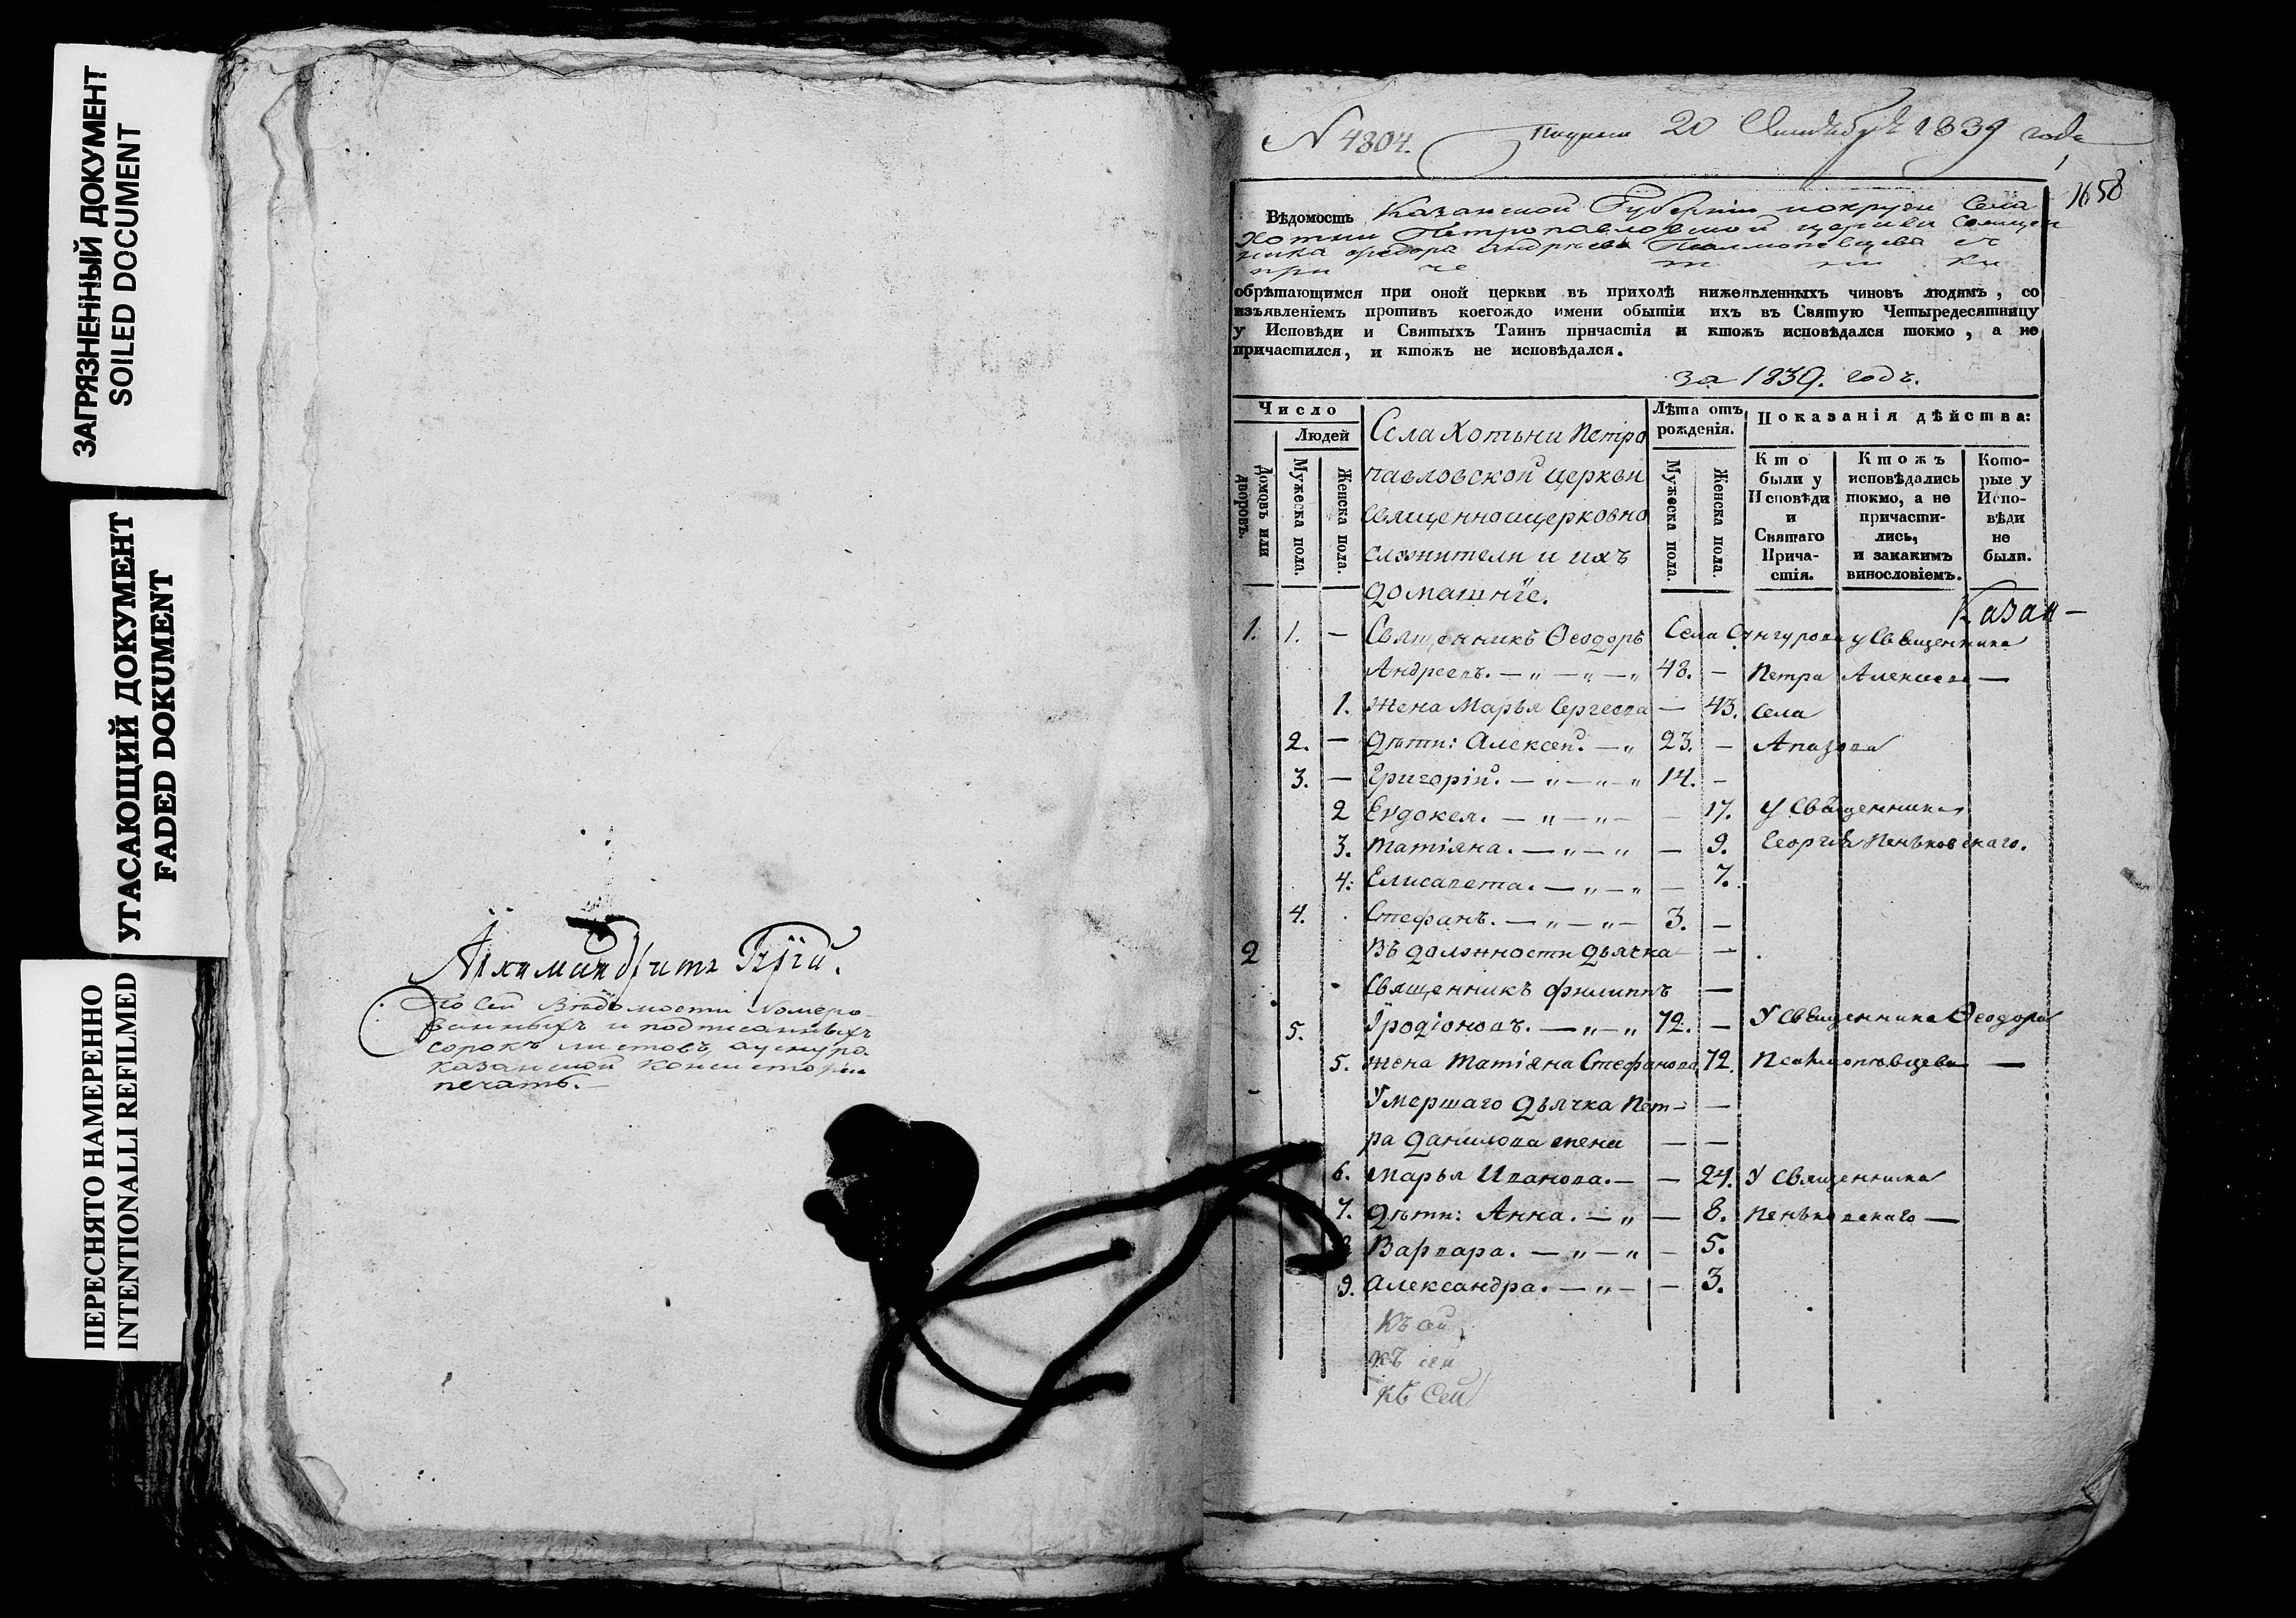 ЗАГРЯЗНЕННЫЙ ДОКУМЕНТ
SOILED DOCUMENT
УГАСАЮЩИЙ ДОКУМЕНТ
FADED DOKUMENT
ПЕРЕСНЯТО НАМЕРЕННО
INTENTIONALLI REFILMED
По сей Вѣдомости Номеро-
ванныхъ и подписанныхъ
сорокъ листовъ, а у шнура
казанской Консисторіи
печать.—
N 4804. 20 1839 года
1658
Вѣдомость Казанской Губерніи и округи Села
Хотни Петропавловской церкви Священ
ника Федора Андреева съ
при че т ни ки
обрѣтающимся при оной церкви въ приходѣ нижеявленныхъ чиновъ людямъ, со
изъявленіемъ противъ коегождо имени обытіи ихъ въ Святую Четыредесятницу
у Исповѣди и Святыхъ Таинъ причастія и ктожъ исповѣдался токмо, а не
причастился, и ктожъ не исповѣдался.
за 1839. годъ.
Число
Людей
Домовъ или дворовъ.
Мужеска пола.
Женска пола.
Села Хотьни Петро
павловской церкви
священноицерковно
служители и ихъ
домашнїе.
Лѣта отъ рожденія.
Мужеска пола.
Женска пола.
Показанія дѣйства:
Кто были у Исповѣди и Святаго Причастія.
Ктожъ исповѣдались токмо, а не причастились, и закакимъ винословіемъ.
Которые у Исповѣди не были.
Казан—
1. 1. — Священникъ Ѳеодоръ Села Сунгурова у Священника
Андреевъ. — „ — „ — „ 48. — Петра Алексеева —
1. Жена Марья Сергеева — 43. Села
2. — Дѣти: Алексей. — „ 23. — Апазова
3. — Григорій. — „ — „ — „ 14. —
2 Евдокея. — „ — „ — — 17. У Священника
3. Татіяна. — „ — „ — 9. Георгія Пеньковскаго.
4. Елисавета. — „ — „ — 7.
4. Стефанъ. — „ — „ — 3. —
2 Въ должности дьячка —
Священникъ Филиппъ —
5. Їродіоновъ. — „ — „ 72. — У Священника Ѳеодора
5. Жена Татіяна Стефанова 72. —
Умершаго дьячка Пет- —
ра Данилова жена — —
6. Марья Иванова. — — 24. У Священника
7. Дѣти: Анна. — „ — 8. Пеньковскаго —
Варвара. — „ — „ — 5.
9. Александра. — „ — — 3.
Къ сей
къ сей
къ Сей